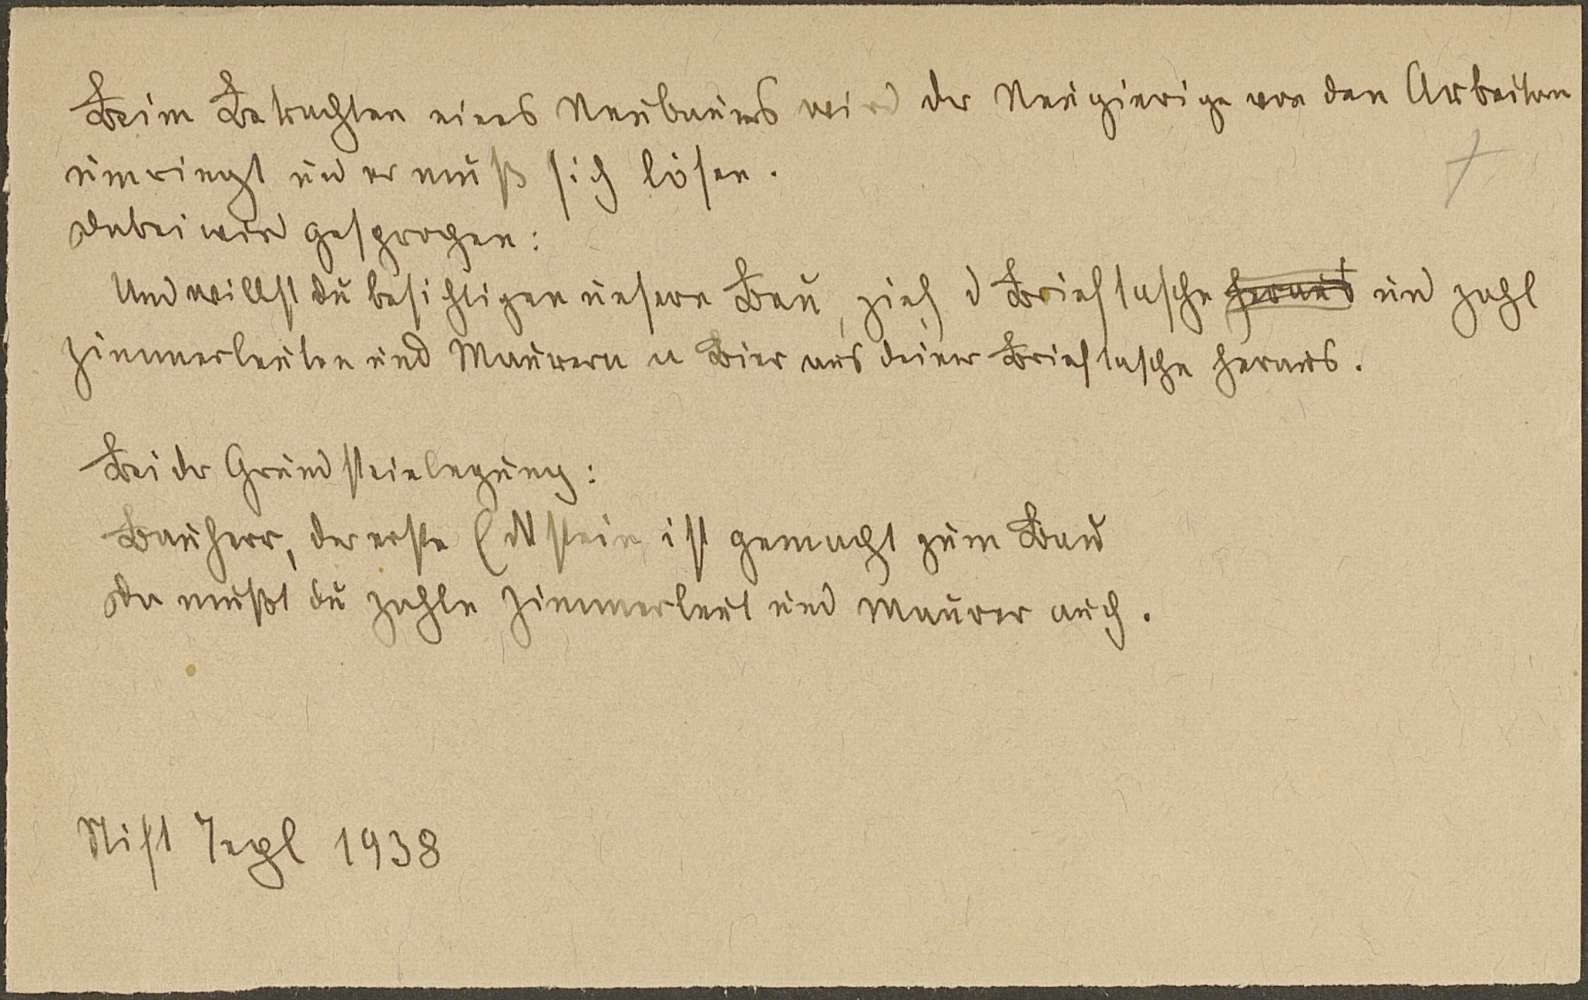 Beim Betrachten eines Neubaues wird der Neugierige von den Arbeitern
umringt und er muß sich lösen.
Dabei wird gesprochen:
Und willst du besichtigen unsern Bau, zieh d Brieftasche heraus und zahl
Zimmerleuten und Maurern a Bier aus deiner Brieftasche heraus.
Bei der Grundsteinlegung:
Bauherr, der erste Eckstein ist gemacht zum Bau
Da mußt du zahln Zimmerleut und Maurer auch.
Stift Tepl 1938